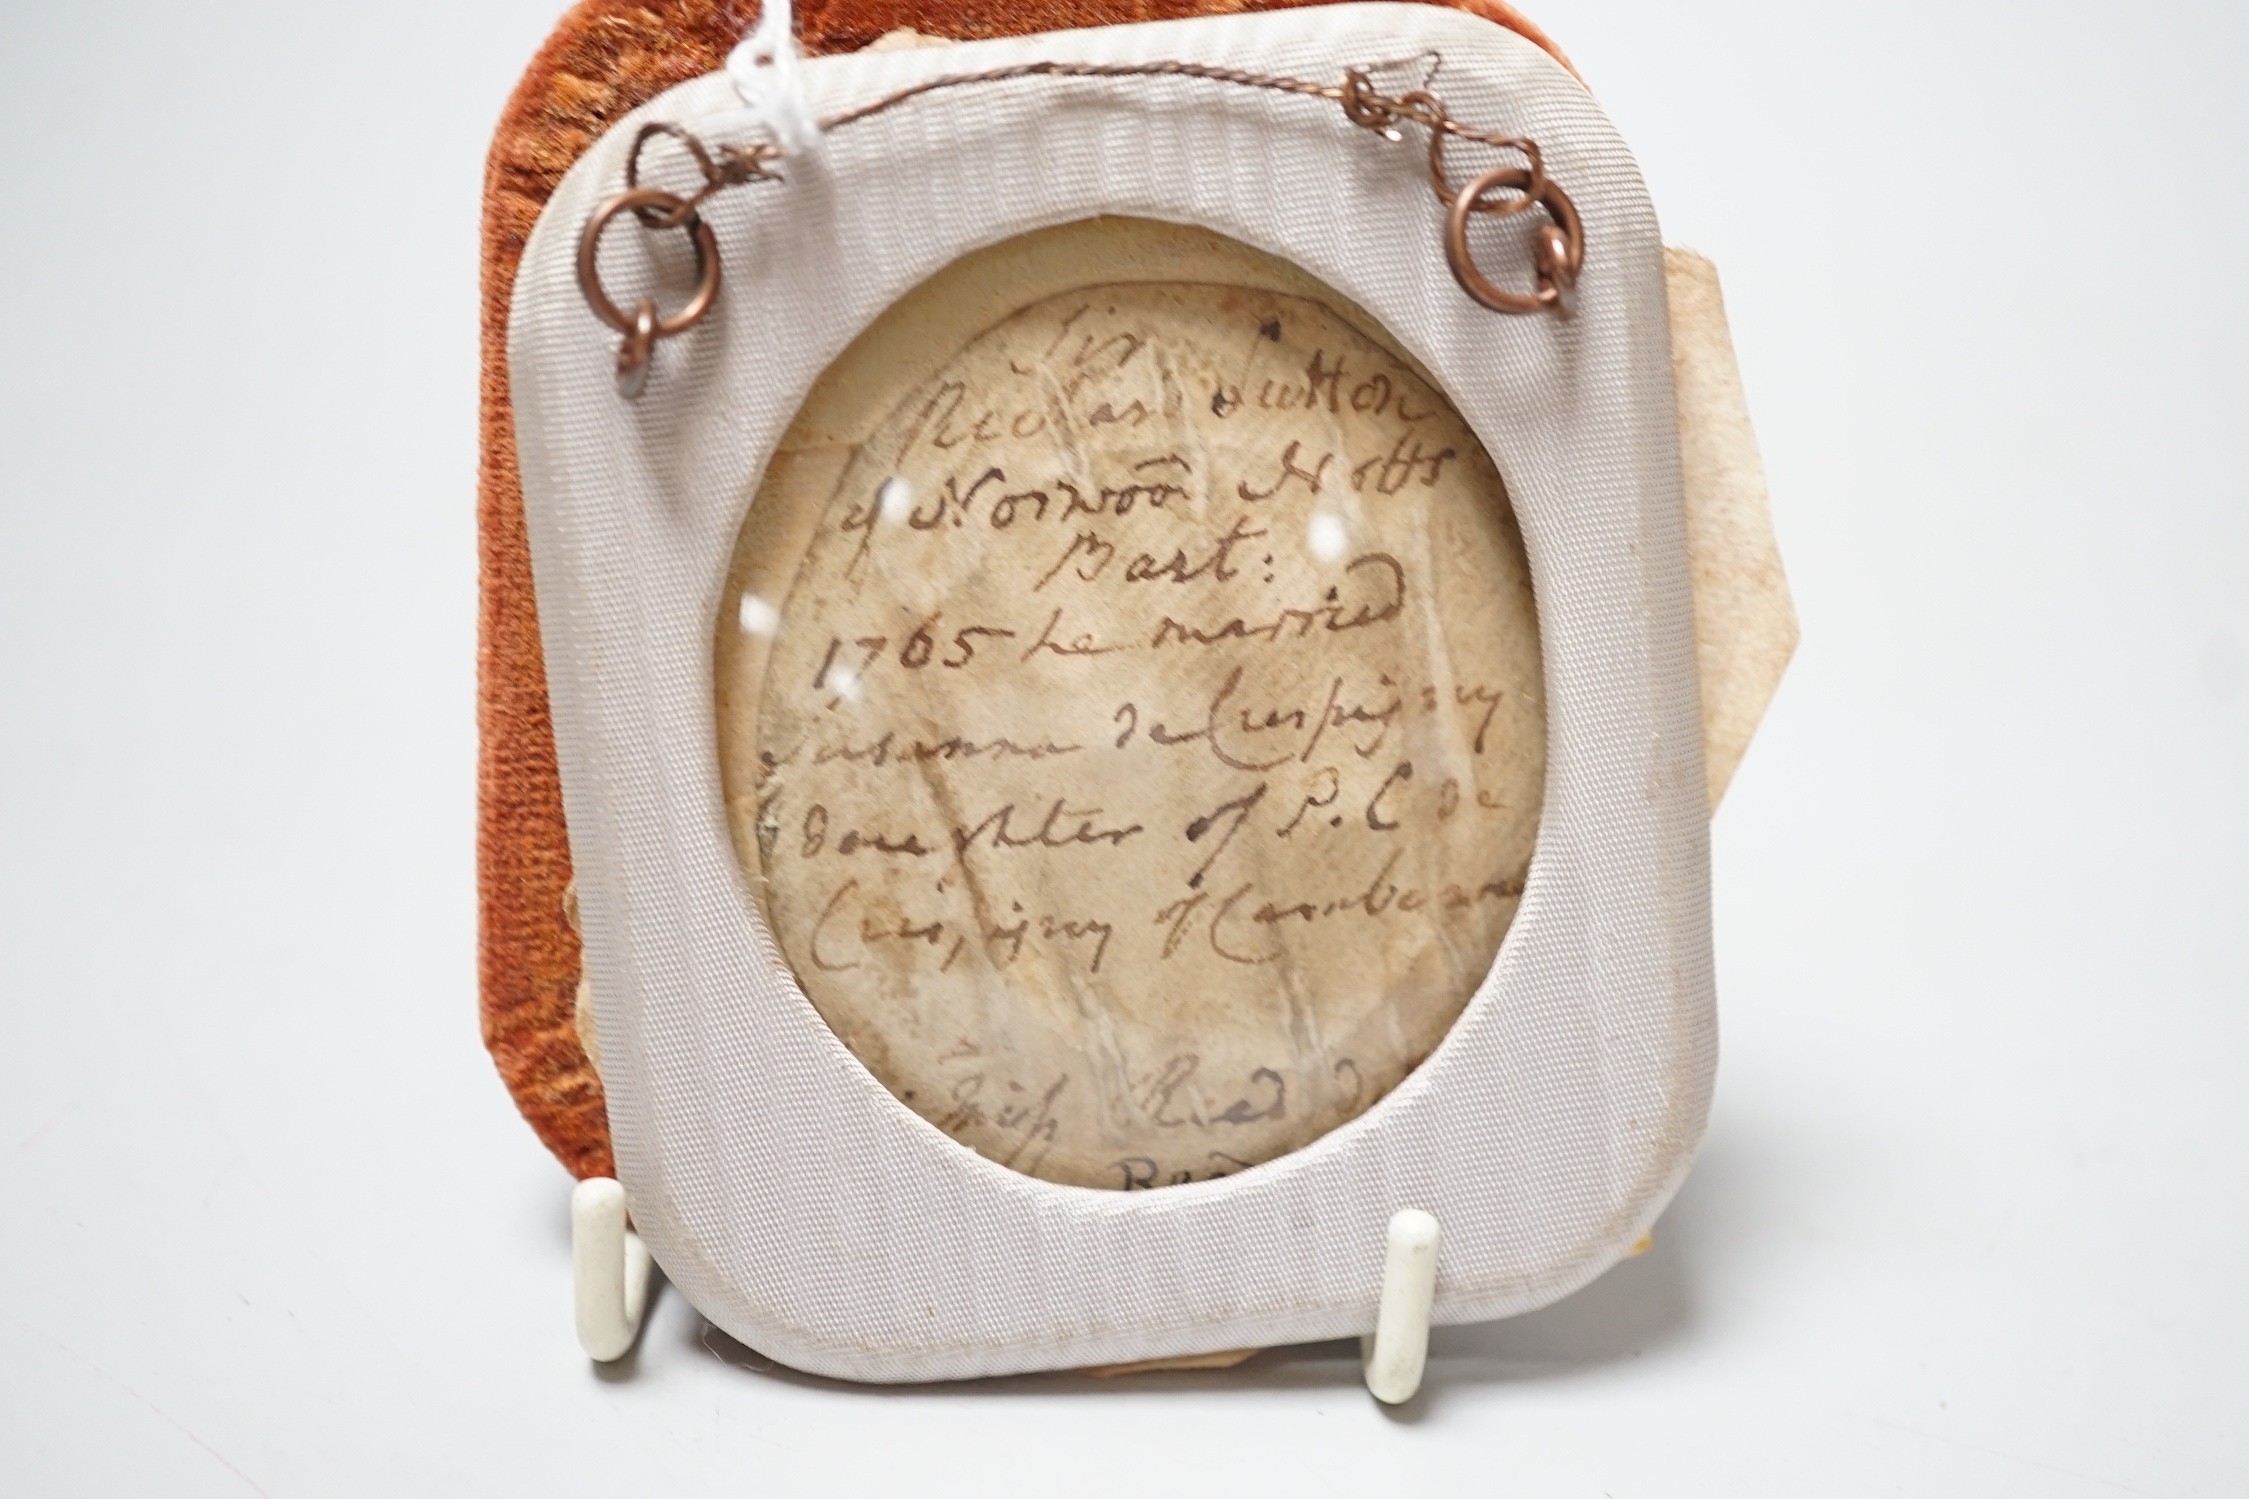 Sir
Richard Sutton
of Norwood Notts
Bart:
1765 he married
Susanna de Crespigny
Daughter of P. C de
Crespigny of Camberwell